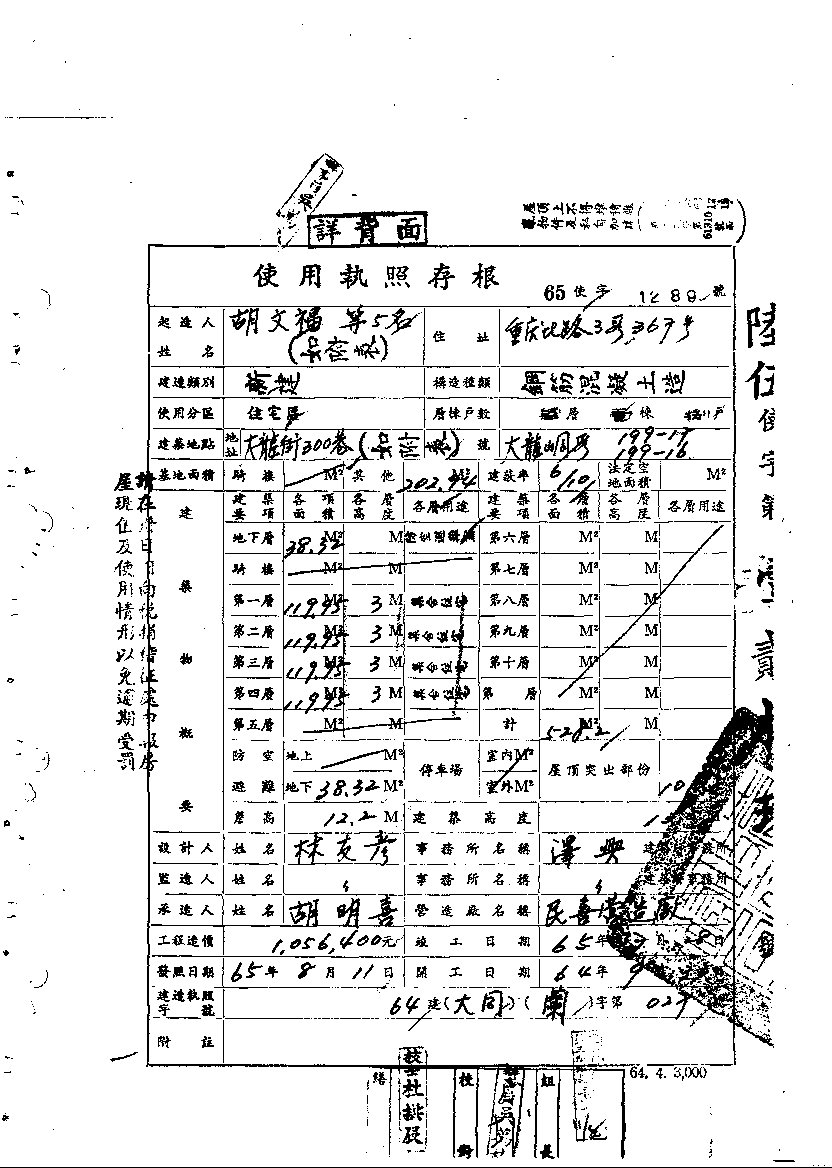 詳背面
使用執照存根
65 使字 1289 號
起造人姓名 胡文福 等5名 住址 重慶北路3段367号
建造類別 新建 構造種類 鋼筋混凝土造
使用分區 住宅區 層棟戶數 層 棟 戶
建築地點 地址 大龍街300巷 號 大龍峒段 199-17 199-16
基地面積 騎樓 M² 其他 202.94 建蔽率 6/10 法定空地面積 M²
建築物概要 建築要項 各項面積 各層高度 各層用途 建築要項 各層面積 各層高度 各層用途
地下層 38.32 M² M 第六層 M² M
騎樓 M² M 第七層 M² M
第一層 119.95 M² 3 M 第八層 M² M
第二層 119.95 M² 3 M 第九層 M² M
第三層 119.95 M² 3 M 第十層 M² M
第四層 119.95 M² 3 M 第 層 M² M
第五層 M² M 計 528.2 M² M
防空 地上 M² 停車場 室內M² 屋頂突出部份
避難 地下 38.32 M² 室外M² 10
簷高 12.2 M 建築高度
設計人 姓名 林友彥 事務所名稱 澤興
監造人 姓名 〃 事務所名稱 〃
承造人 姓名 胡明喜 營造廠名稱 民喜營造廠
工程造價 1,056,400元 竣工日期 65年
發照日期 65年8月11日 開工日期 64年
建造執照字號 64建(大同)(蘭)字第 027
附註
64. 4. 3,000
屋頂上不得
61310
現住及使用情形以免逾期受罰
使字第
校對
組長
繕